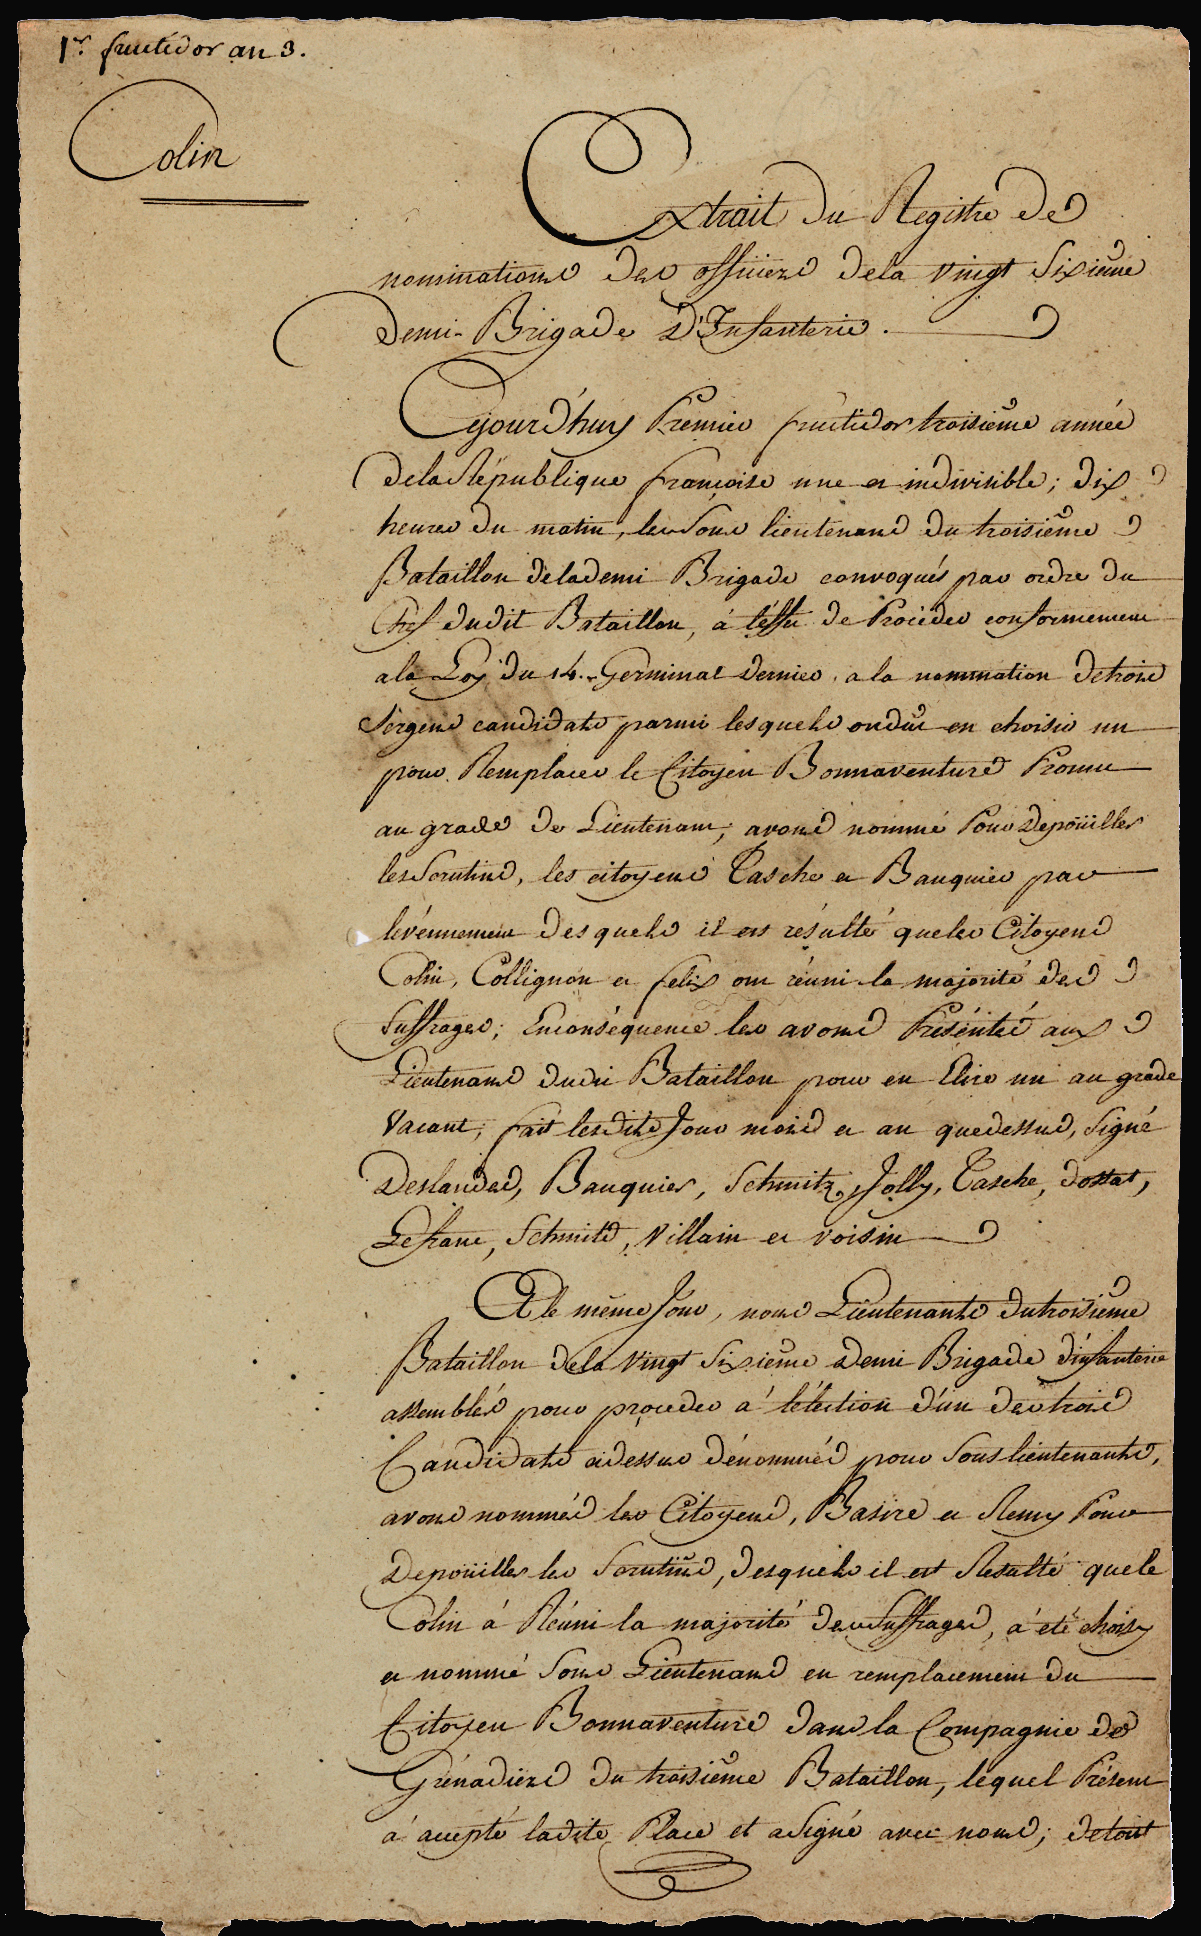 1er fructidor an 3.
Colin
Extrait du Registre de
nominations des officiers dela vingt Sixieme
Demi-Brigade D'Infanterie.
Cejourd'huy Premier fructidor troisieme année
dela République françoise une et indivisible; dix
heures du matin, les Sous lieutenans du troisieme
Bataillon de la demi Brigade convoqués par ordre du
Chef dudit Bataillon, à l'éffet de Procéder conformement
a la Loy du 14. Germinal dernier, a la nomination de trois
Sergens candidats parmi lesquels on doit en choisir un
pour Remplacer le Citoyen Bonnaventure Promu
au grade de Lieutenant, avons nommé Pour Depoüiller
les Scrutins, les citoyens Tasche et Bauquier par
lévénnement desquels il en résulté que les Citoyens
Colin, Collignon et felix ont réuni la majorité des
Suffrages; Enconséquence les avons Présénté aux
Lieutenans dudit Bataillon pour en Elire un au grade
Vacant, fait lesdits Jour mois et an quedessus, Signé
Deslandes, Bauquier, Schmitz, Jolly, Tasche, dostat,
Lefranc, Schmits, Villain et voisin
Et le même Jour, nous Lieutenants du troisieme
Bataillon dela Vingt Sixieme Demi Brigade d'infanterie
assemblés pour proceder à l'élection d'un des trois
Candidats cidessus dénommés pour Sous lieutenants,
avons nommés les Citoyens, Basire et Remy Pour
Depoüiller les Scrutins, desquels il est Résulté que le
Colin à Réuni la majorité des Suffrages, à été choisy
et nommé Sous Lieutenand en remplacement du
Citoyen Bonnaventure dans la Compagnie des
Grénadiers du troisieme Bataillon, lequel Présent
à accepté ladite Place et a Signé avec nous; de tout